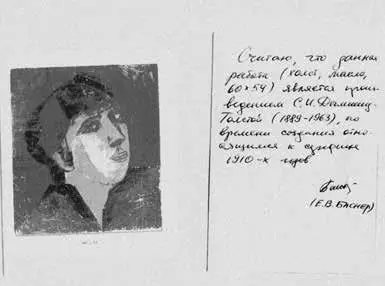 Считаю, что данная
работа (холст, масло,
60×54) является произ-
ведением С.И. Дымшиц-
Толстой (1889-1963), по
времени создания отно-
сящимся к середине
1910-х годов.
(Е.В. Баснер)